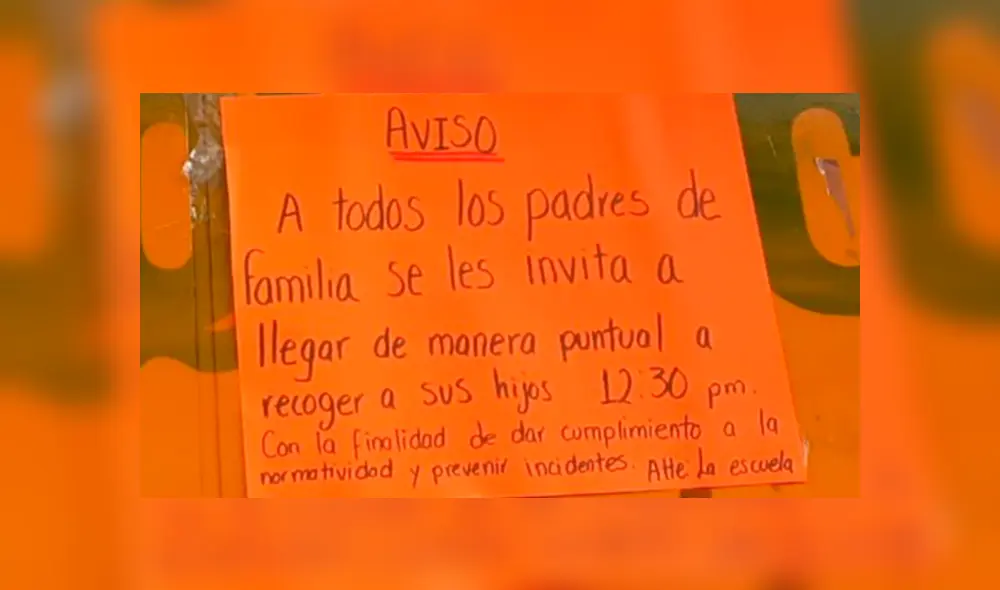 AVISO
A todos los padres de
familia se les invita a
llegar de manera puntual a
recoger a sus hijos 12:30 pm.
Con la finalidad de dar cumplimiento a la
normatividad y prevenir incidentes. Atte La escuela